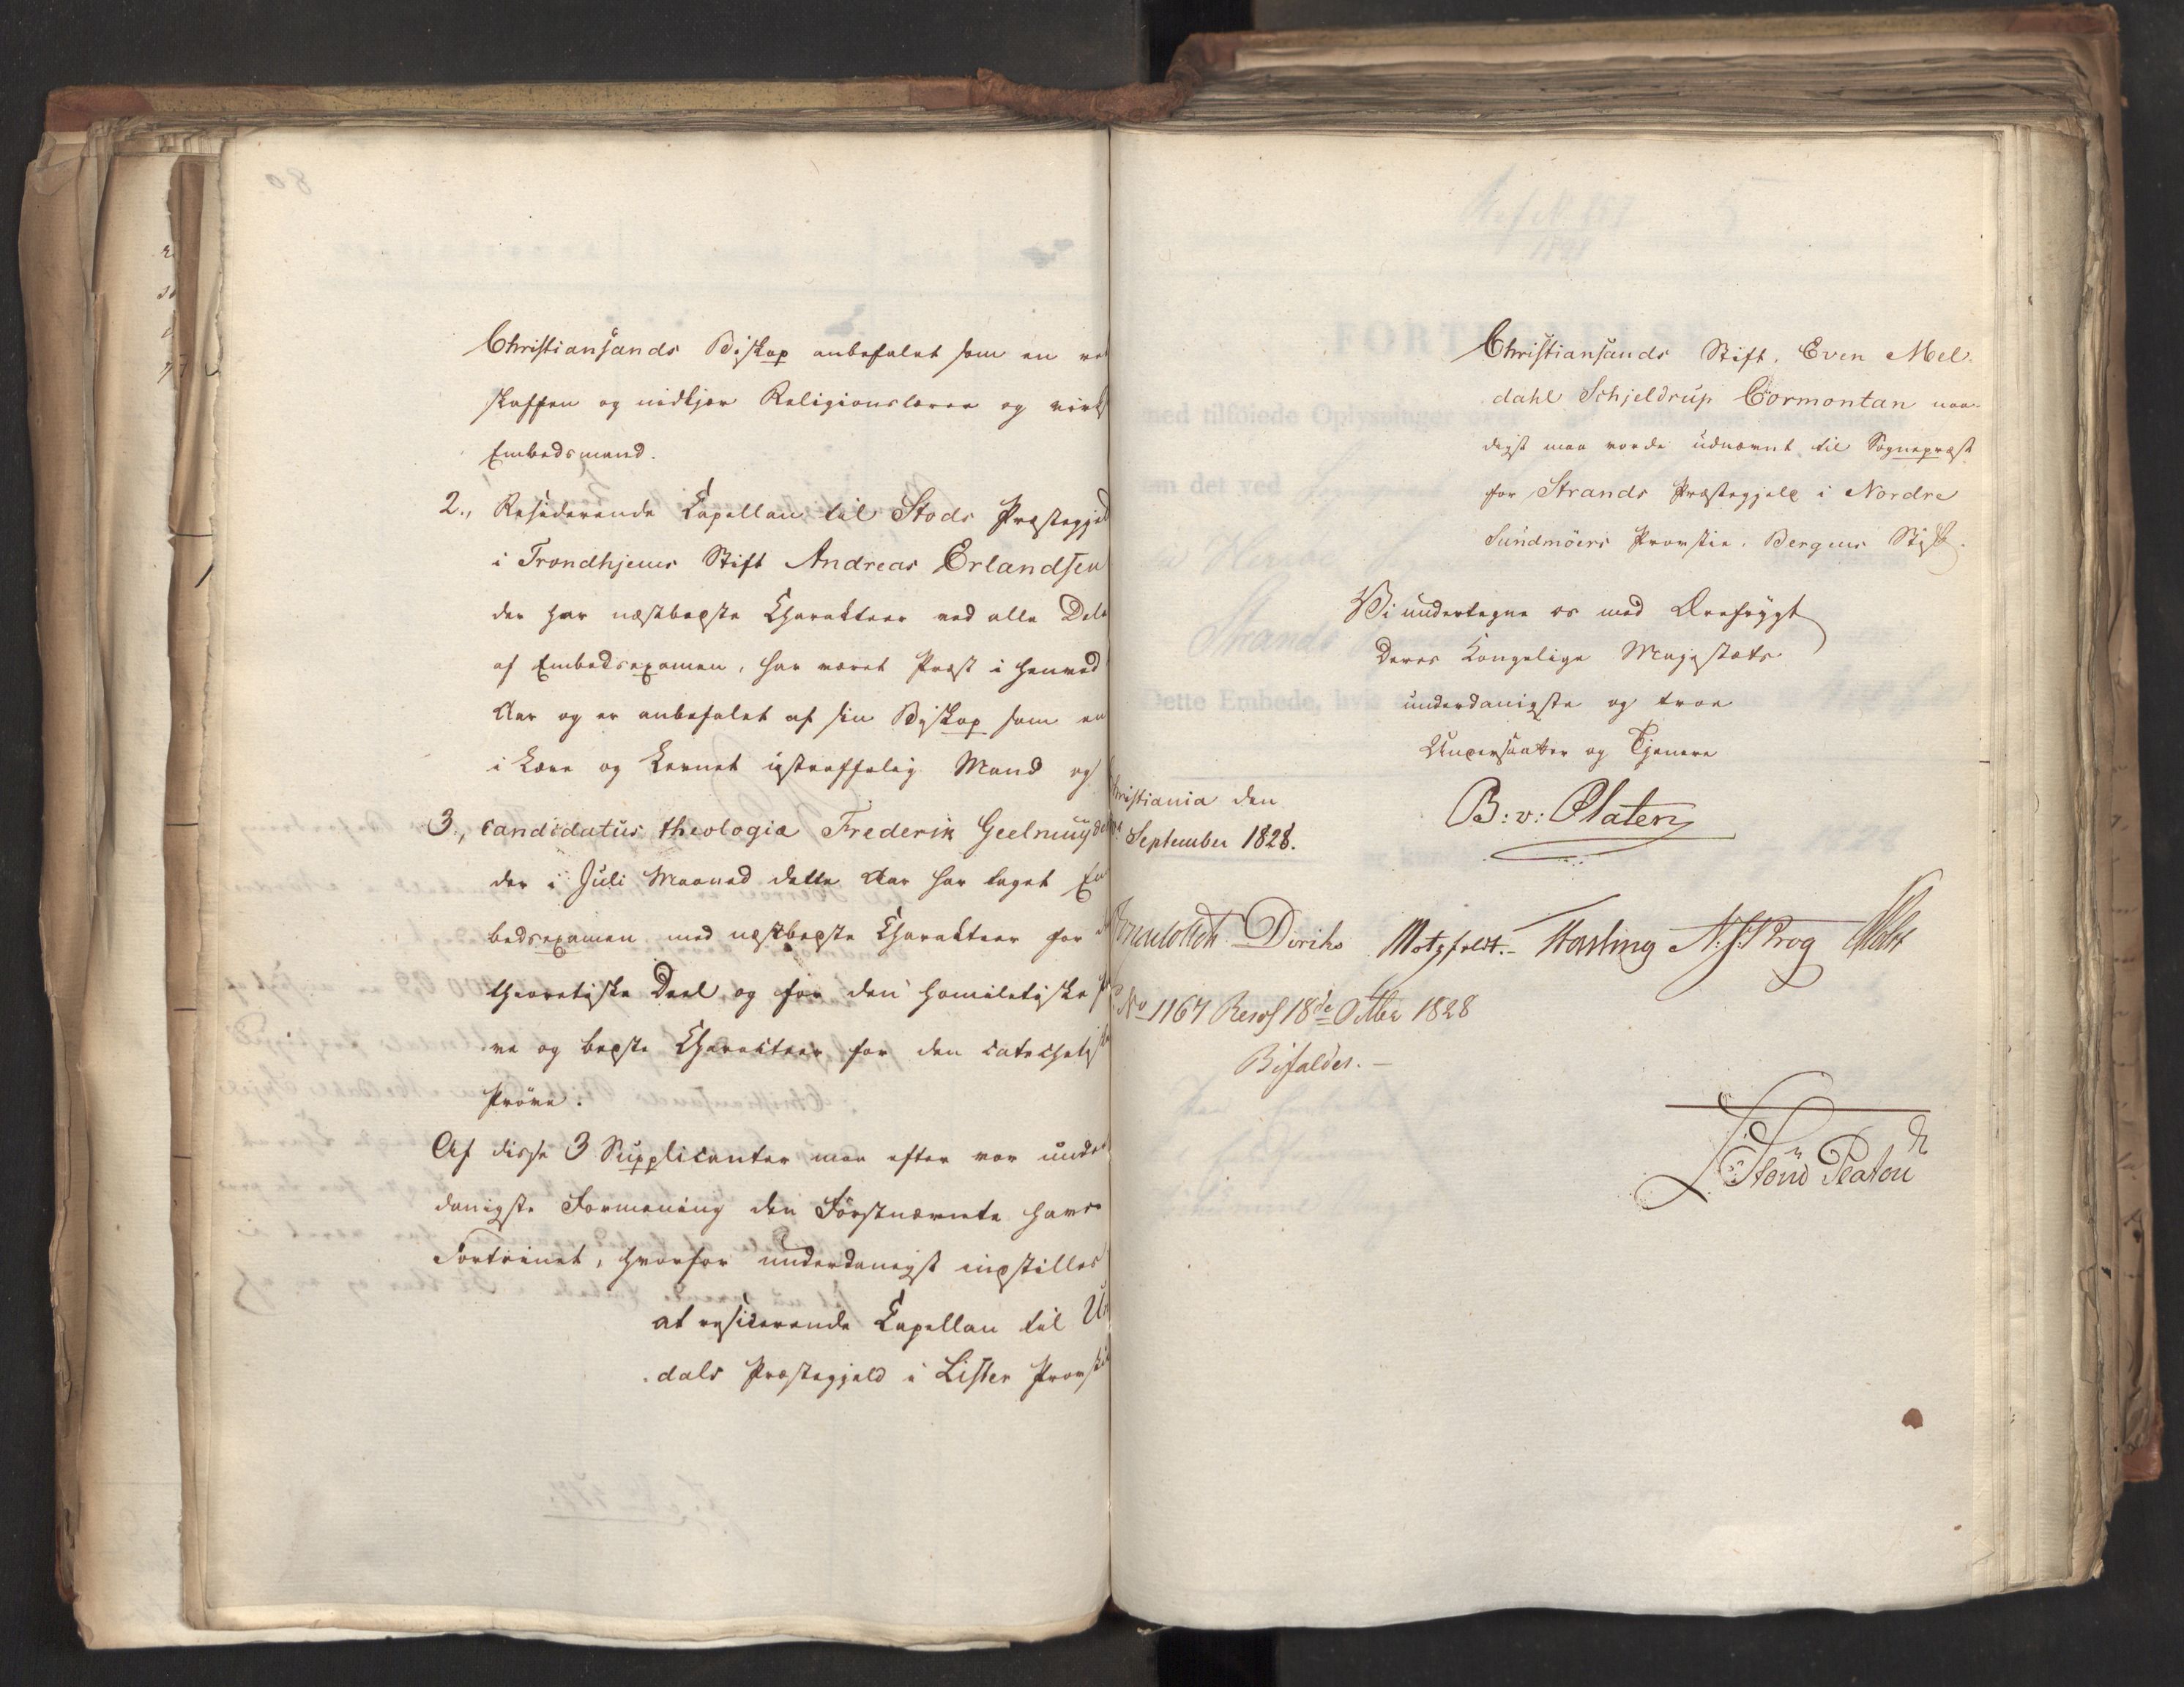 Christiansands Biskop anbefalet som en ret
skaffen og nidkjær Religionslærer og virks
Embedsmand.
2., Residerende Capellan til Stods Præstegjeld
i Trondhjems Stift Andreas Erlandsen
der har næstbedste Charakteer ved alle Dele
af Embedsexamen, har været Præst i henved
Aar og er anbefalet af sin Biskop som en
i Lære og Levnet ustraffelig Mand og
3., candidatus theologiæ Frederik Geelmuyden
der i Juli Maaned dette Aar har taget Em
bedsexamen med næstbedste Charakteer for
theoretiske Deel, og for den homiletiske Prö
ve og bedste Charakteer for den catechetiske
Pröve.
Af disse 3 Supplicanter maa efter vor under
danigste Formening den Förstnævnte have
Fortrinet, hvorfor underdanigst indstilles
at residerende Capellan til Un
dals Præstegjeld i Lister Provstie
Christiansands Stift, Even Mel
dahl Schjeldrup Cormontan naa
digst maa vorde udnævnt til Sognepræst
for Strands Præstegjeld i Nordre
Sundmöers Provstie, Bergens Stift.
Vi undertegne os med Ærefrygt
Deres Kongelige Majestæts
underdanigste og troe
Undersaatter og Tjenere
B: v: Platen
Christiania den
September 1828.
Diriks Motzfeldt.- Fasting N. J. Krog Holst
No 1167 Resol 18de Octber 1828
Bifaldes. -